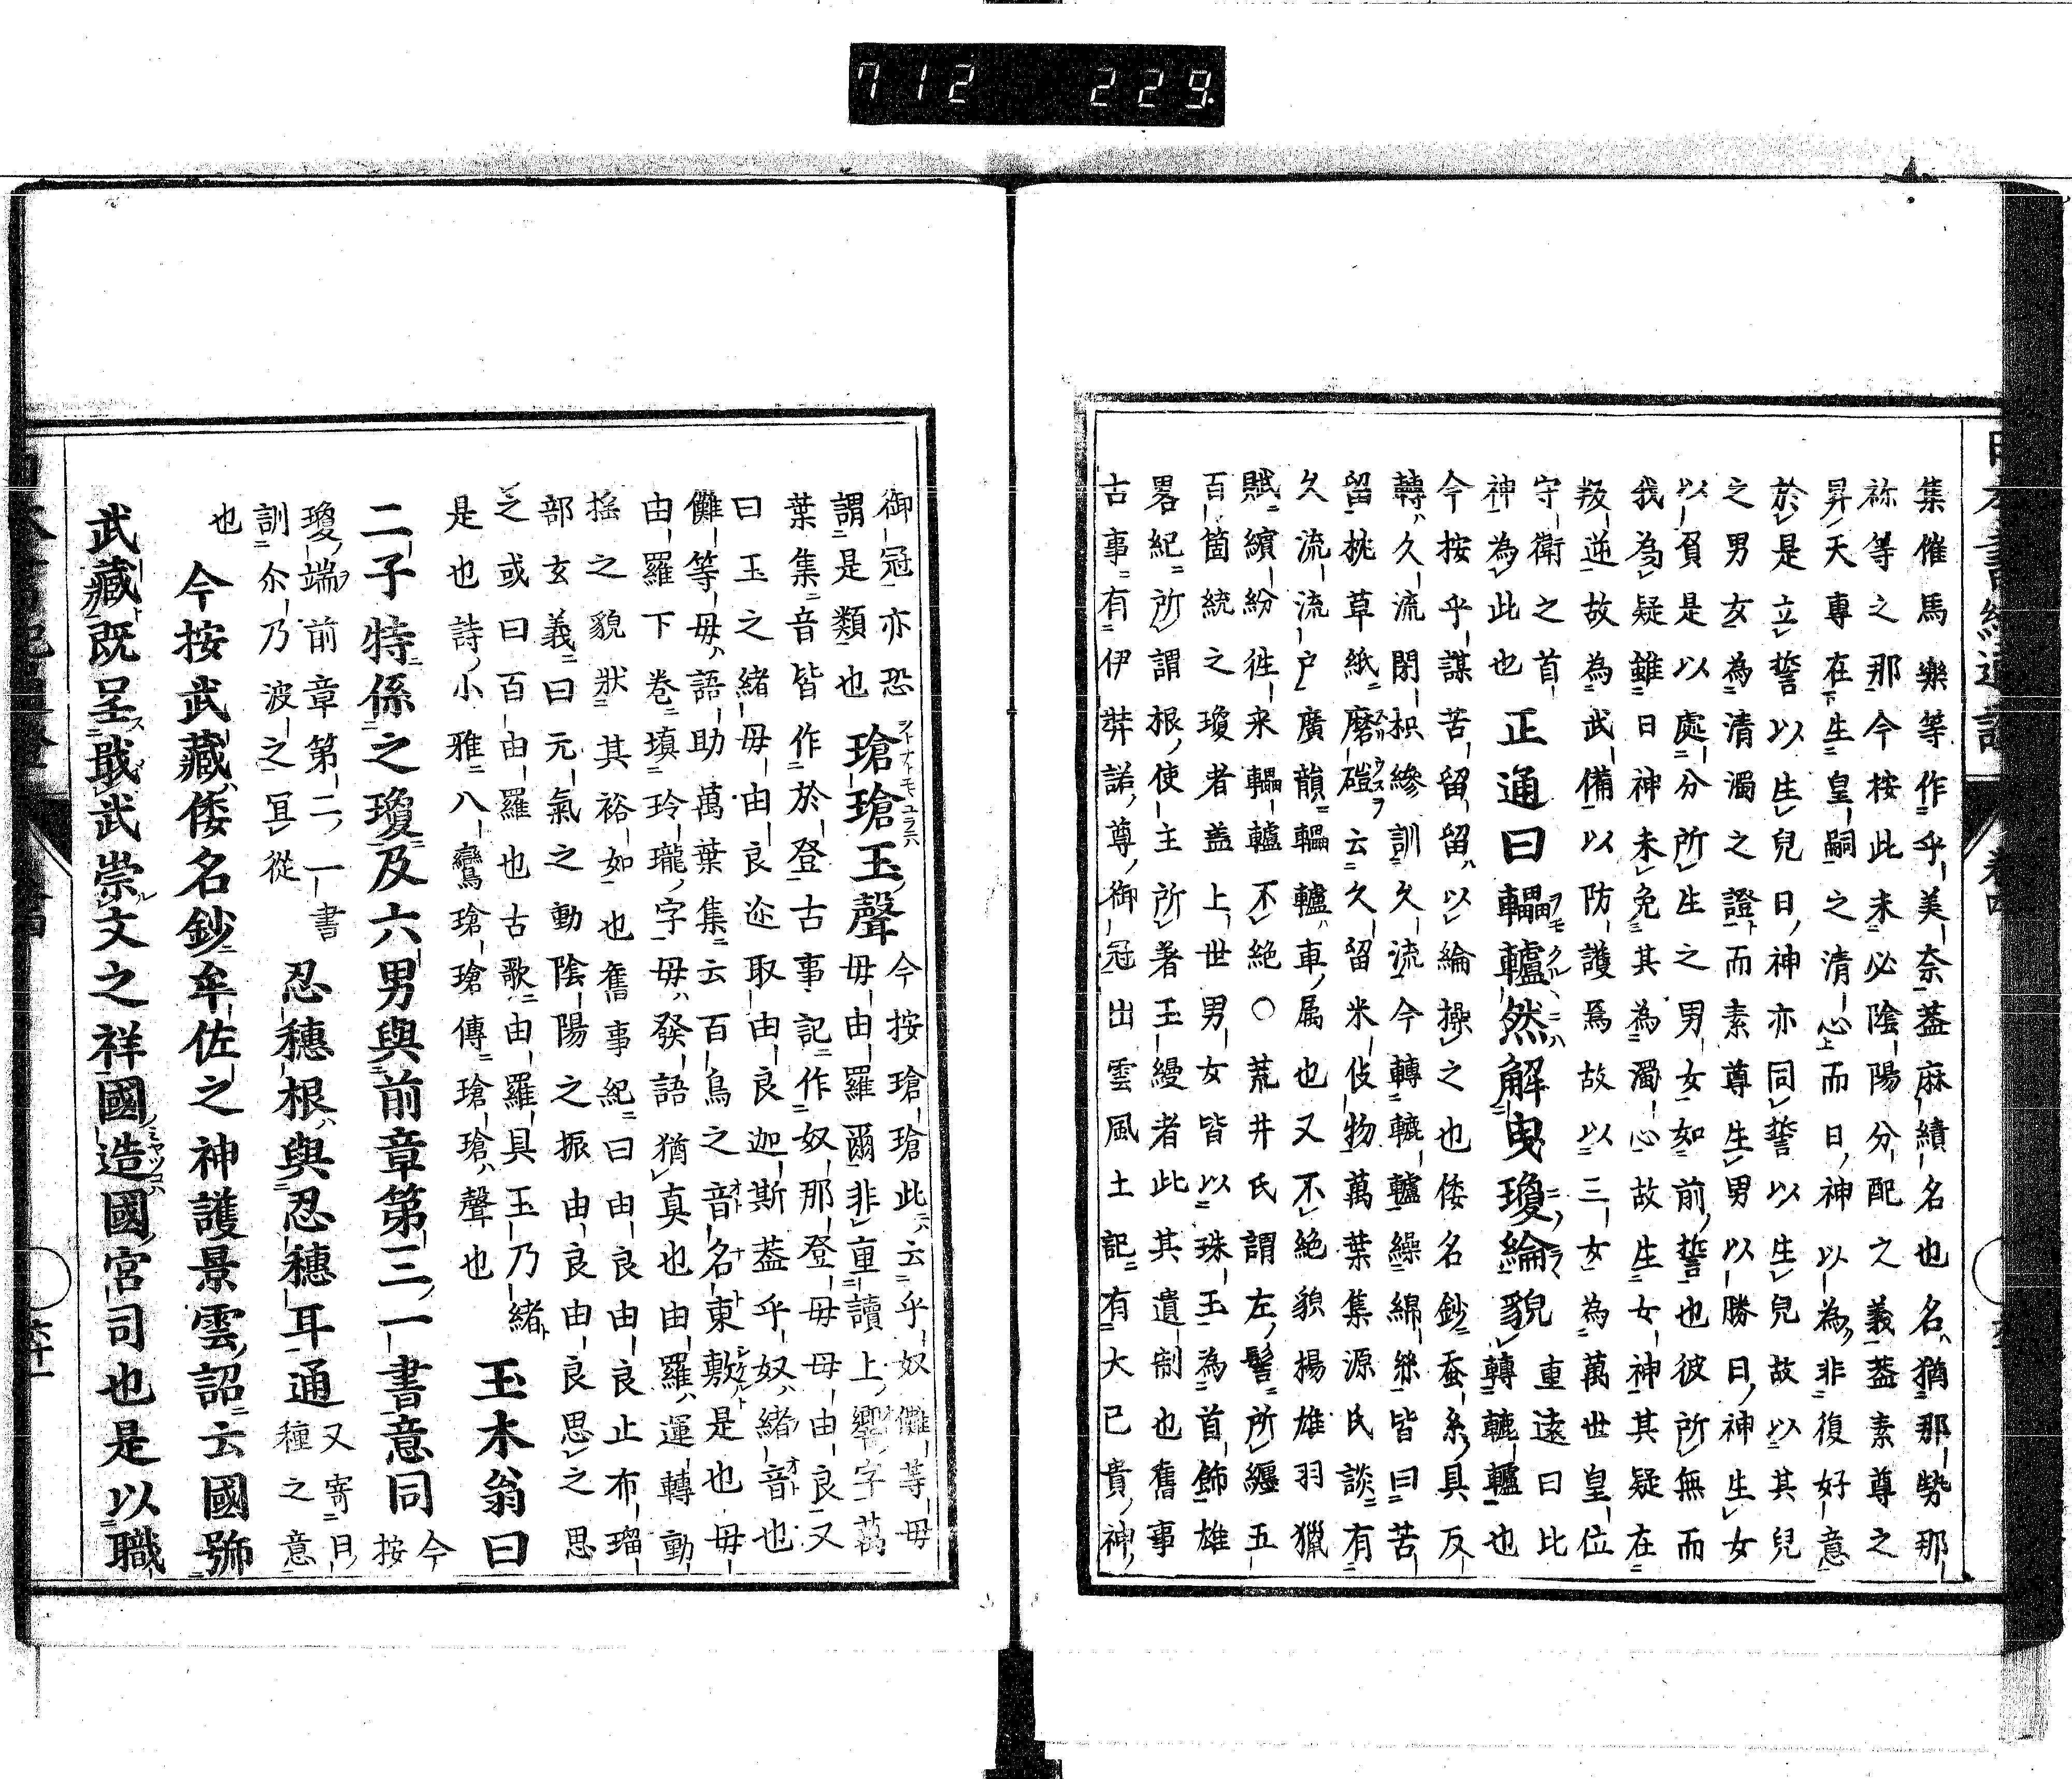 712 229.
集催馬樂等作乎美奈蓋麻績名也名猶那勢那
祢等之那今桉此未必陰陽分配之義蓋素尊之
昇天專在生皇嗣之清心而日神以為非復好意
於是立誓以生兒日神亦同誓以生兒故以其兒
之男女為清濁之證而素尊生男以勝日神生女
以負是以處分所生之男女如前誓也彼所無而
我為疑雖日神未免其為濁心故生女神其疑在
叛逆故為武備以防護焉故以三女為萬世皇位
守衛之首 重遠曰比
神為此也 正通曰轠轤然解曳瓊綸貌 轉轆轤也
今按乎謀苦留留以綸操之也倭名鈔蚕糸具反
轉久流閇枳縿訓久流今轉轆轤繰綿糸皆曰苦
留挑草紙磨磑云久留米伎物萬葉集源氏談有
久流流戸廣韻轠轤車属也又不絶貌楊雄羽獵
賦繽紛徃来轠轤不絶○荒井氏謂左髻所纒五
百箇統之瓊者盖上世男女皆以珠玉為首飾雄
畧紀所謂根使主所著玉縵者此其遺制也舊事
古事有伊弉諾尊御冠出雲風土記有大已貴神
御冠亦恐 今按瑲瑲此云乎奴儺等毋
謂是類也 瑲瑲玉聲 毋由羅爾非重讀上響字萬
葉集音皆作於登古事記作奴那登毋毋由良又
曰玉之緒毋由良迩取由良迦斯蓋乎奴緒音也
儺等毋語助萬葉集云百鳥之音名東敷是也毋
由羅下巻塡玲瓏字毋發語猶真也由羅運轉動
搖之貌狀其裕如也舊事紀曰由良由良止布瑠
部玄義曰元氣之動陰陽之振由良由良思之思
之或曰百由羅也古歌由羅具玉乃緒
是也詩小雅八鸞瑲瑲傳瑲瑲聲也 玉木翁曰
二子特係之瓊及六男與前章第三一書意同 今按
瓊端前章第二一書
訓尒乃波之冝從 忍穗根與忍穗耳通 又寄日種之意
也 今按武藏倭名鈔牟佐之神護景雲詔云國號
武藏既呈戢武崇文之祥國造國宮司也是以職